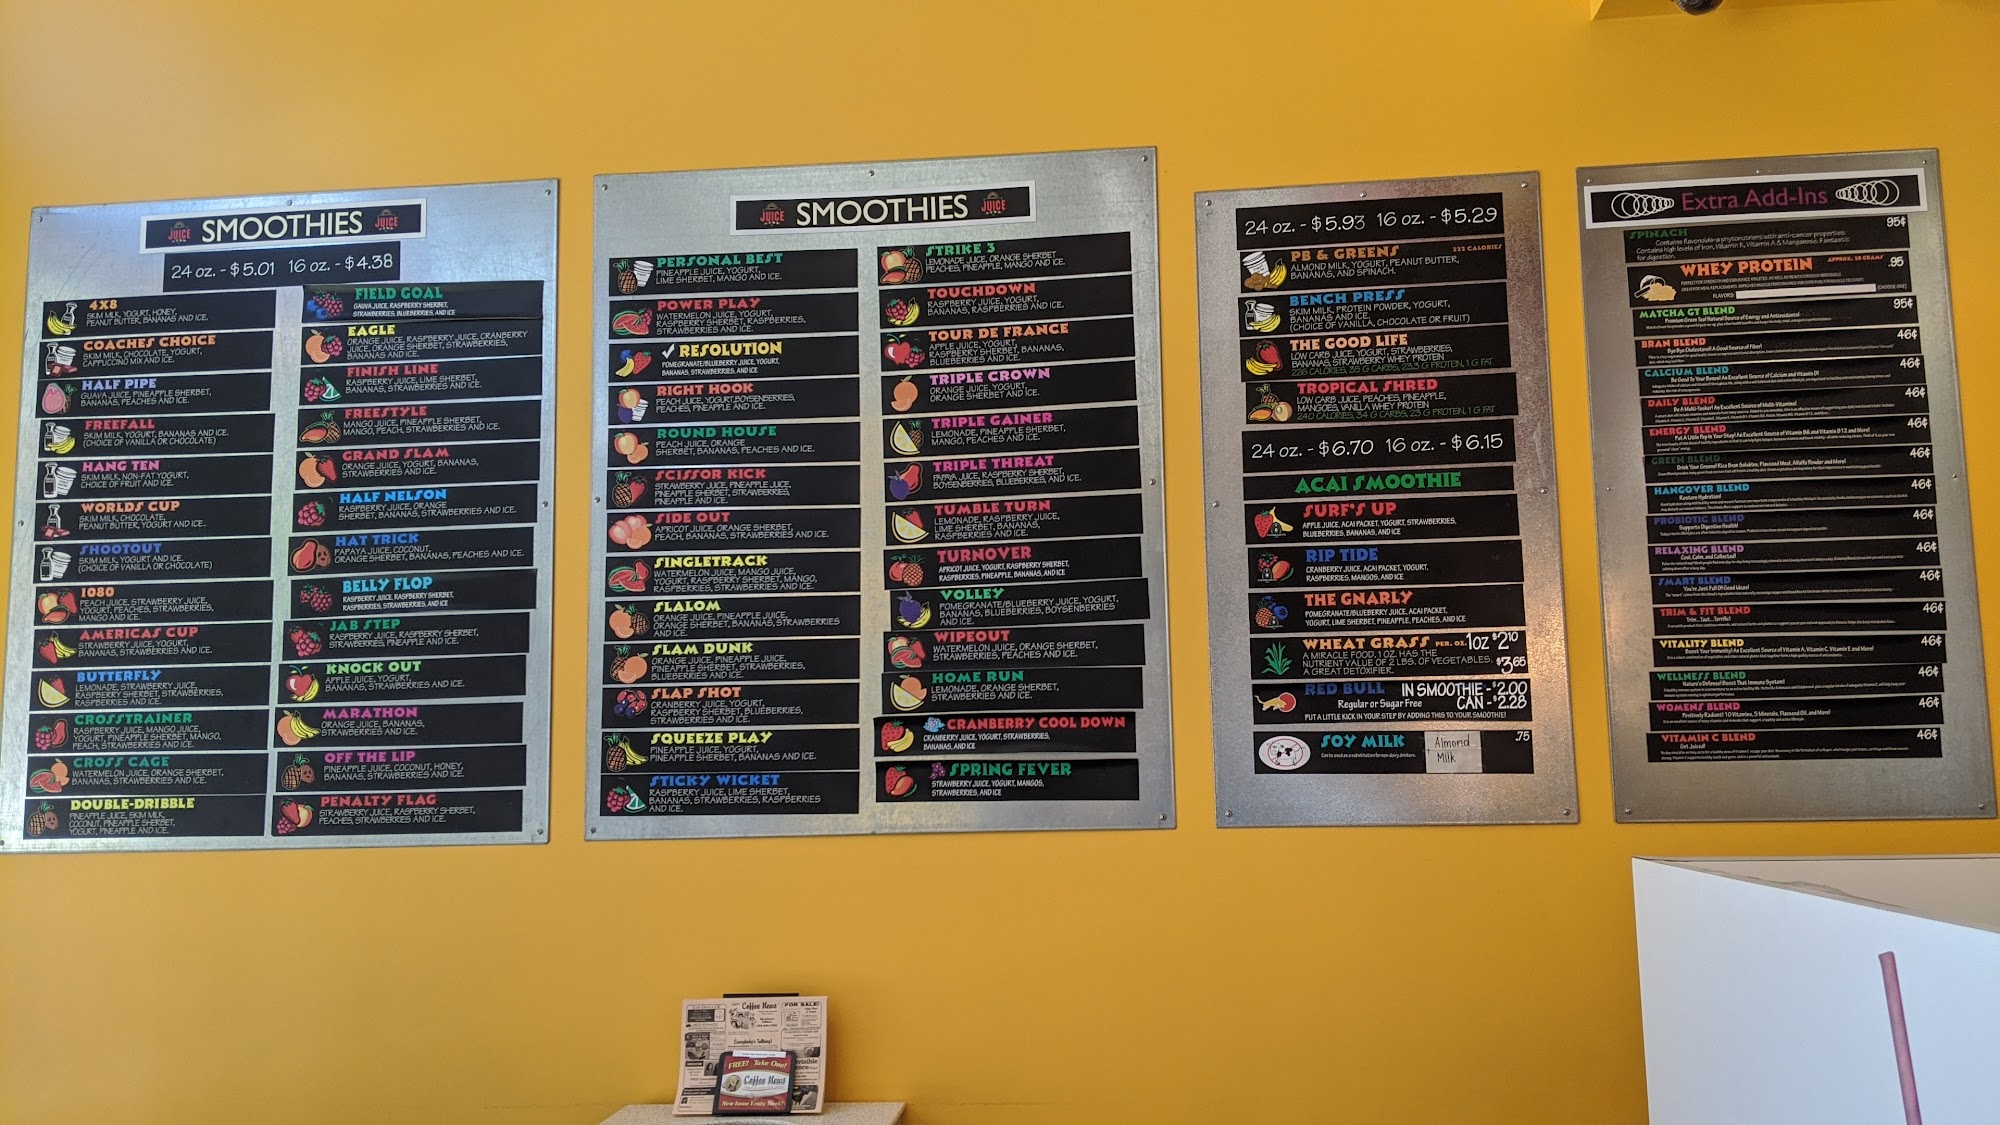 JUICE SMOOTHIES JUICE
24 oz. - $5.01 16 oz. - $4.38
4X8
SKIM MILK, YOGURT, HONEY,
PEANUT BUTTER, BANANAS AND ICE.
COACHES CHOICE
SKIM MILK, CHOCOLATE, YOGURT,
CAPPUCCINO MIX AND ICE.
HALF PIPE
GUAVA JUICE, PINEAPPLE SHERBET,
BANANAS, PEACHES AND ICE.
FREEFALL
SKIM MILK, YOGURT, BANANAS AND ICE.
(CHOICE OF VANILLA OR CHOCOLATE)
HANG TEN
SKIM MILK, NON-FAT YOGURT,
CHOICE OF FRUIT AND ICE.
WORLDS CUP
SKIM MILK, CHOCOLATE,
PEANUT BUTTER, YOGURT AND ICE..
SHOOTOUT
SKIM MILK, YOGURT AND ICE.
(CHOICE OF VANILLA OR CHOCOLATE)
1080
PEACH JUICE, STRAWBERRY JUICE,
YOGURT, PEACHES, STRAWBERRIES,
MANGO AND ICE.
AMERICAS CUP
STRAWBERRY JUICE, YOGURT,
BANANAS, STRAWBERRIES AND ICE.
BUTTERFLY
LEMONADE, STRAWBERRY JUICE,
RASPBERRY SHERBET, STRAWBERRIES,
BANANAS AND ICE.
CROSSTRAINER
RASPBERRY JUICE, MANGO JUICE,
YOGURT, PINEAPPLE SHERBET, MANGO,
PEACH, STRAWBERRIES AND ICE.
CROSS CAGE
WATERMELON JUICE, ORANGE SHERBET,
BANANAS, STRAWBERRIES AND ICE.
DOUBLE-DRIBBLE
PINEAPPLE JUICE, SKIM MILK,
COCONUT, PINEAPPLE SHERBET,
YOGURT, PINEAPPLE AND ICE.
FIELD GOAL
GAUVA JUICE, RASPBERRY SHERBET,
STRAWBERRIES, BLUEBERRIES, AND ICE
EAGLE
ORANGE JUICE, RASPBERRY JUICE, CRANBERRY
JUICE, ORANGE SHERBET, STRAWBERRIES,
BANANAS AND ICE.
FINISH LINE
RASPBERRY JUICE, LIME SHERBET,
BANANAS, STRAWBERRIES AND ICE.
FREESTYLE
MANGO JUICE, PINEAPPLE SHERBET,
MANGO, PEACH, STRAWBERRIES AND ICE.
GRAND SLAM
ORANGE JUICE, YOGURT, BANANAS,
STRAWBERRIES AND ICE.
HALF NELSON
RASPBERRY JUICE, ORANGE
SHERBET, BANANAS, STRAWBERRIES AND ICE.
HAT TRICK
PAPAYA JUICE, COCONUT,
ORANGE SHERBET, BANANAS, PEACHES AND ICE.
BELLY FLOP
RASPBERRY JUICE, RASPBERRY SHERBET,
RASPBERRIES, STRAWBERRIES, AND ICE
JAB STEP
RASPBERRY JUICE, RASPBERRY SHERBET,
STRAWBERRIES, PINEAPPLE AND ICE.
KNOCK OUT
APPLE JUICE, YOGURT,
BANANAS, STRAWBERRIES AND ICE.
MARATHON
ORANGE JUICE, BANANAS,
STRAWBERRIES AND ICE.
OFF THE LIP
PINEAPPLE JUICE, COCONUT, HONEY,
BANANAS, STRAWBERRIES AND ICE.
PENALTY FLAG
STRAWBERRY JUICE, RASPBERRY SHERBET,
PEACHES, STRAWBERRIES AND ICE.
JUICE SMOOTHIES JUICE
PERSONAL BEST
PINEAPPLE JUICE, YOGURT,
LIME SHERBET, MANGO AND ICE.
POWER PLAY
WATERMELON JUICE, YOGURT,
RASPBERRY SHERBET, RASPBERRIES,
STRAWBERRIES AND ICE.
✓ RESOLUTION
POMEGRANATE/BLUEBERRY JUICE, YOGURT,
BANANAS, STRAWBERRIES, AND ICE
RIGHT HOOK
PEACH JUICE, YOGURT, BOYSENBERRIES,
PEACHES, PINEAPPLE AND ICE.
ROUND HOUSE
PEACH JUICE, ORANGE
SHERBET, BANANAS, PEACHES AND ICE.
SCISSOR KICK
STRAWBERRY JUICE, PINEAPPLE JUICE,
PINEAPPLE SHERBET, STRAWBERRIES,
PINEAPPLE AND ICE.
SIDE OUT
APRICOT JUICE, ORANGE SHERBET,
PEACH, BANANAS, STRAWBERRIES AND ICE.
SINGLETRACK
WATERMELON JUICE, MANGO JUICE,
YOGURT, RASPBERRY SHERBET, MANGO,
RASPBERRIES, STRAWBERRIES AND ICE.
SLALOM
ORANGE JUICE, PINEAPPLE JUICE,
ORANGE SHERBET, BANANAS, STRAWBERRIES
AND ICE.
SLAM DUNK
ORANGE JUICE, PINEAPPLE JUICE,
ORANGE SHERBET, STRAWBERRIES,
BLUEBERRIES AND ICE.
SLAP SHOT
CRANBERRY JUICE, YOGURT,
RASPBERRY SHERBET, BLUEBERRIES,
STRAWBERRIES AND ICE.
SQUEEZE PLAY
PINEAPPLE JUICE, YOGURT,
PINEAPPLE SHERBET, BANANAS AND ICE.
STICKY WICKET
RASPBERRY JUICE, LIME SHERBET,
BANANAS, STRAWBERRIES, RASPBERRIES
AND ICE.
STRIKE 3
LEMONADE JUICE, ORANGE SHERBET,
PEACHES, PINEAPPLE, MANGO AND ICE.
TOUCHDOWN
RASPBERRY JUICE, YOGURT,
BANANAS, RASPBERRIES AND ICE.
TOUR DE FRANCE
APPLE JUICE, YOGURT,
RASPBERRY SHERBET, BANANAS,
BLUEBERRIES AND ICE.
TRIPLE CROWN
ORANGE JUICE, YOGURT,
ORANGE SHERBET AND ICE.
TRIPLE GAINER
LEMONADE, PINEAPPLE SHERBET,
MANGO, PEACHES AND ICE.
TRIPLE THREAT
PAPAYA JUICE, RASPBERRY SHERBET,
BOYSENBERRIES, BLUEBERRIES, AND ICE.
TUMBLE TURN
LEMONADE, RASPBERRY JUICE,
LIME SHERBET, BANANAS,
RASPBERRIES AND ICE.
TURNOVER
APRICOT JUICE, YOGURT, RASPBERRY SHERBET,
RASPBERRIES, PINEAPPLE, BANANAS, AND ICE
VOLLEY
POMEGRANATE/BLUEBERRY JUICE, YOGURT,
BANANAS, BLUEBERRIES, BOYSENBERRIES
AND ICE.
WIPEOUT
WATERMELON JUICE, ORANGE SHERBET,
STRAWBERRIES, PEACHES AND ICE.
HOME RUN
LEMONADE, ORANGE SHERBET,
STRAWBERRIES AND ICE.
CRANBERRY COOL DOWN
CRANBERRY JUICE, YOGURT, STRAWBERRIES,
BANANAS, AND ICE
SPRING FEVER
STRAWBERRY JUICE, YOGURT, MANGOS,
STRAWBERRIES, AND ICE
24 oz. - $5.93 16 oz. - $5.29
PB & GREENS 322 CALORIES
ALMOND MILK, YOGURT, PEANUT BUTTER,
BANANAS, AND SPINACH.
BENCH PRESS
SKIM MILK, PROTEIN POWDER, YOGURT,
BANANAS AND ICE.
(CHOICE OF VANILLA, CHOCOLATE OR FRUIT)
THE GOOD LIFE
LOW CARB JUICE, YOGURT, STRAWBERRIES,
BANANAS, STRAWBERRY WHEY PROTEIN
226 CALORIES, 35 G CARBS, 23.3 G PROTEIN, 1 G FAT
TROPICAL SHRED
LOW CARB JUICE, PEACHES, PINEAPPLE,
MANGOES, VANILLA WHEY PROTEIN
240 CALORIES, 34 G CARBS, 23 G PROTEIN, 1 G FAT
24 oz. - $6.70 16 oz. - $6.15
ACAI SMOOTHIE
SURF'S UP
APPLE JUICE, ACAI PACKET, YOGURT, STRAWBERRIES,
BLUEBERRIES, BANANAS, AND ICE
RIP TIDE
CRANBERRY JUICE, ACAI PACKET, YOGURT,
RASPBERRIES, MANGOS, AND ICE
THE GNARLY
POMEGRANATE/BLUEBERRY JUICE, ACAI PACKET,
YOGURT, LIME SHERBET, PINEAPPLE, PEACHES, AND ICE
WHEAT GRASS PER. OZ. 1OZ $2.10
A MIRACLE FOOD. 1 OZ. HAS THE
NUTRIENT VALUE OF 2 LBS. OF VEGETABLES.
A GREAT DETOXIFIER. $3.65
RED BULL IN SMOOTHIE - $2.00
Regular or Sugar Free CAN - $2.28
PUT A LITTLE KICK IN YOUR STEP BY ADDING THIS TO YOUR SMOOTHIE!
SOY MILK .75
Can be used as a substitution for non-dairy drinkers.
Almond
Milk
Extra Add-Ins
SPINACH 95¢
Contains flavonoids-a phytonutrients with anti-cancer properties.
Contains high levels of Iron, Vitamin K, Vitamin A & Manganese. Fantastic
for digestion.
WHEY PROTEIN APPROX. 20 GRAMS .95
FLAVORS: (CHOOSE ONE)
MATCHA GT BLEND 95¢
Premium Green Tea! Natural Source of Energy and Antioxidants!
BRAN BLEND 46¢
Bye Bye Cholesterol! A Good Source of Fiber!
CALCIUM BLEND 46¢
Be Good To Your Bones! An Excellent Source of Calcium and Vitamin D!
DAILY BLEND 46¢
Be A Multi-Tasker! An Excellent Source of Multi-Vitamins!
ENERGY BLEND 46¢
Put A Little Pep In Your Step! An Excellent Source of Vitamin B6 and Vitamin B12 and More!
GREEN BLEND 46¢
Drink Your Greens! Rice Bran Solubles, Flaxseed Meal, Alfalfa Powder and More!
HANGOVER BLEND 46¢
Restore Hydration!
PROBIOTIC BLEND 46¢
Supports Digestive Health!
RELAXING BLEND 46¢
Cool, Calm, and Collected!
SMART BLEND 46¢
You're Just Full Of Good Ideas!
TRIM & FIT BLEND 46¢
Trim... Taut... Terrific!
VITALITY BLEND 46¢
Boost Your Immunity! An Excellent Source of Vitamin A, Vitamin C, Vitamin E and More!
WELLNESS BLEND 46¢
Nature's Defense! Boost That Immune System!
WOMENS BLEND 46¢
Positively Radiant! 10 Vitamins, 5 Minerals, Flaxseed Oil, and More!
VITAMIN C BLEND 46¢
Get Juiced!
Coffee News
FOR SALE!
Everybody's Talking!
FREE! Take One!
Coffee News
New Issue Every Week!